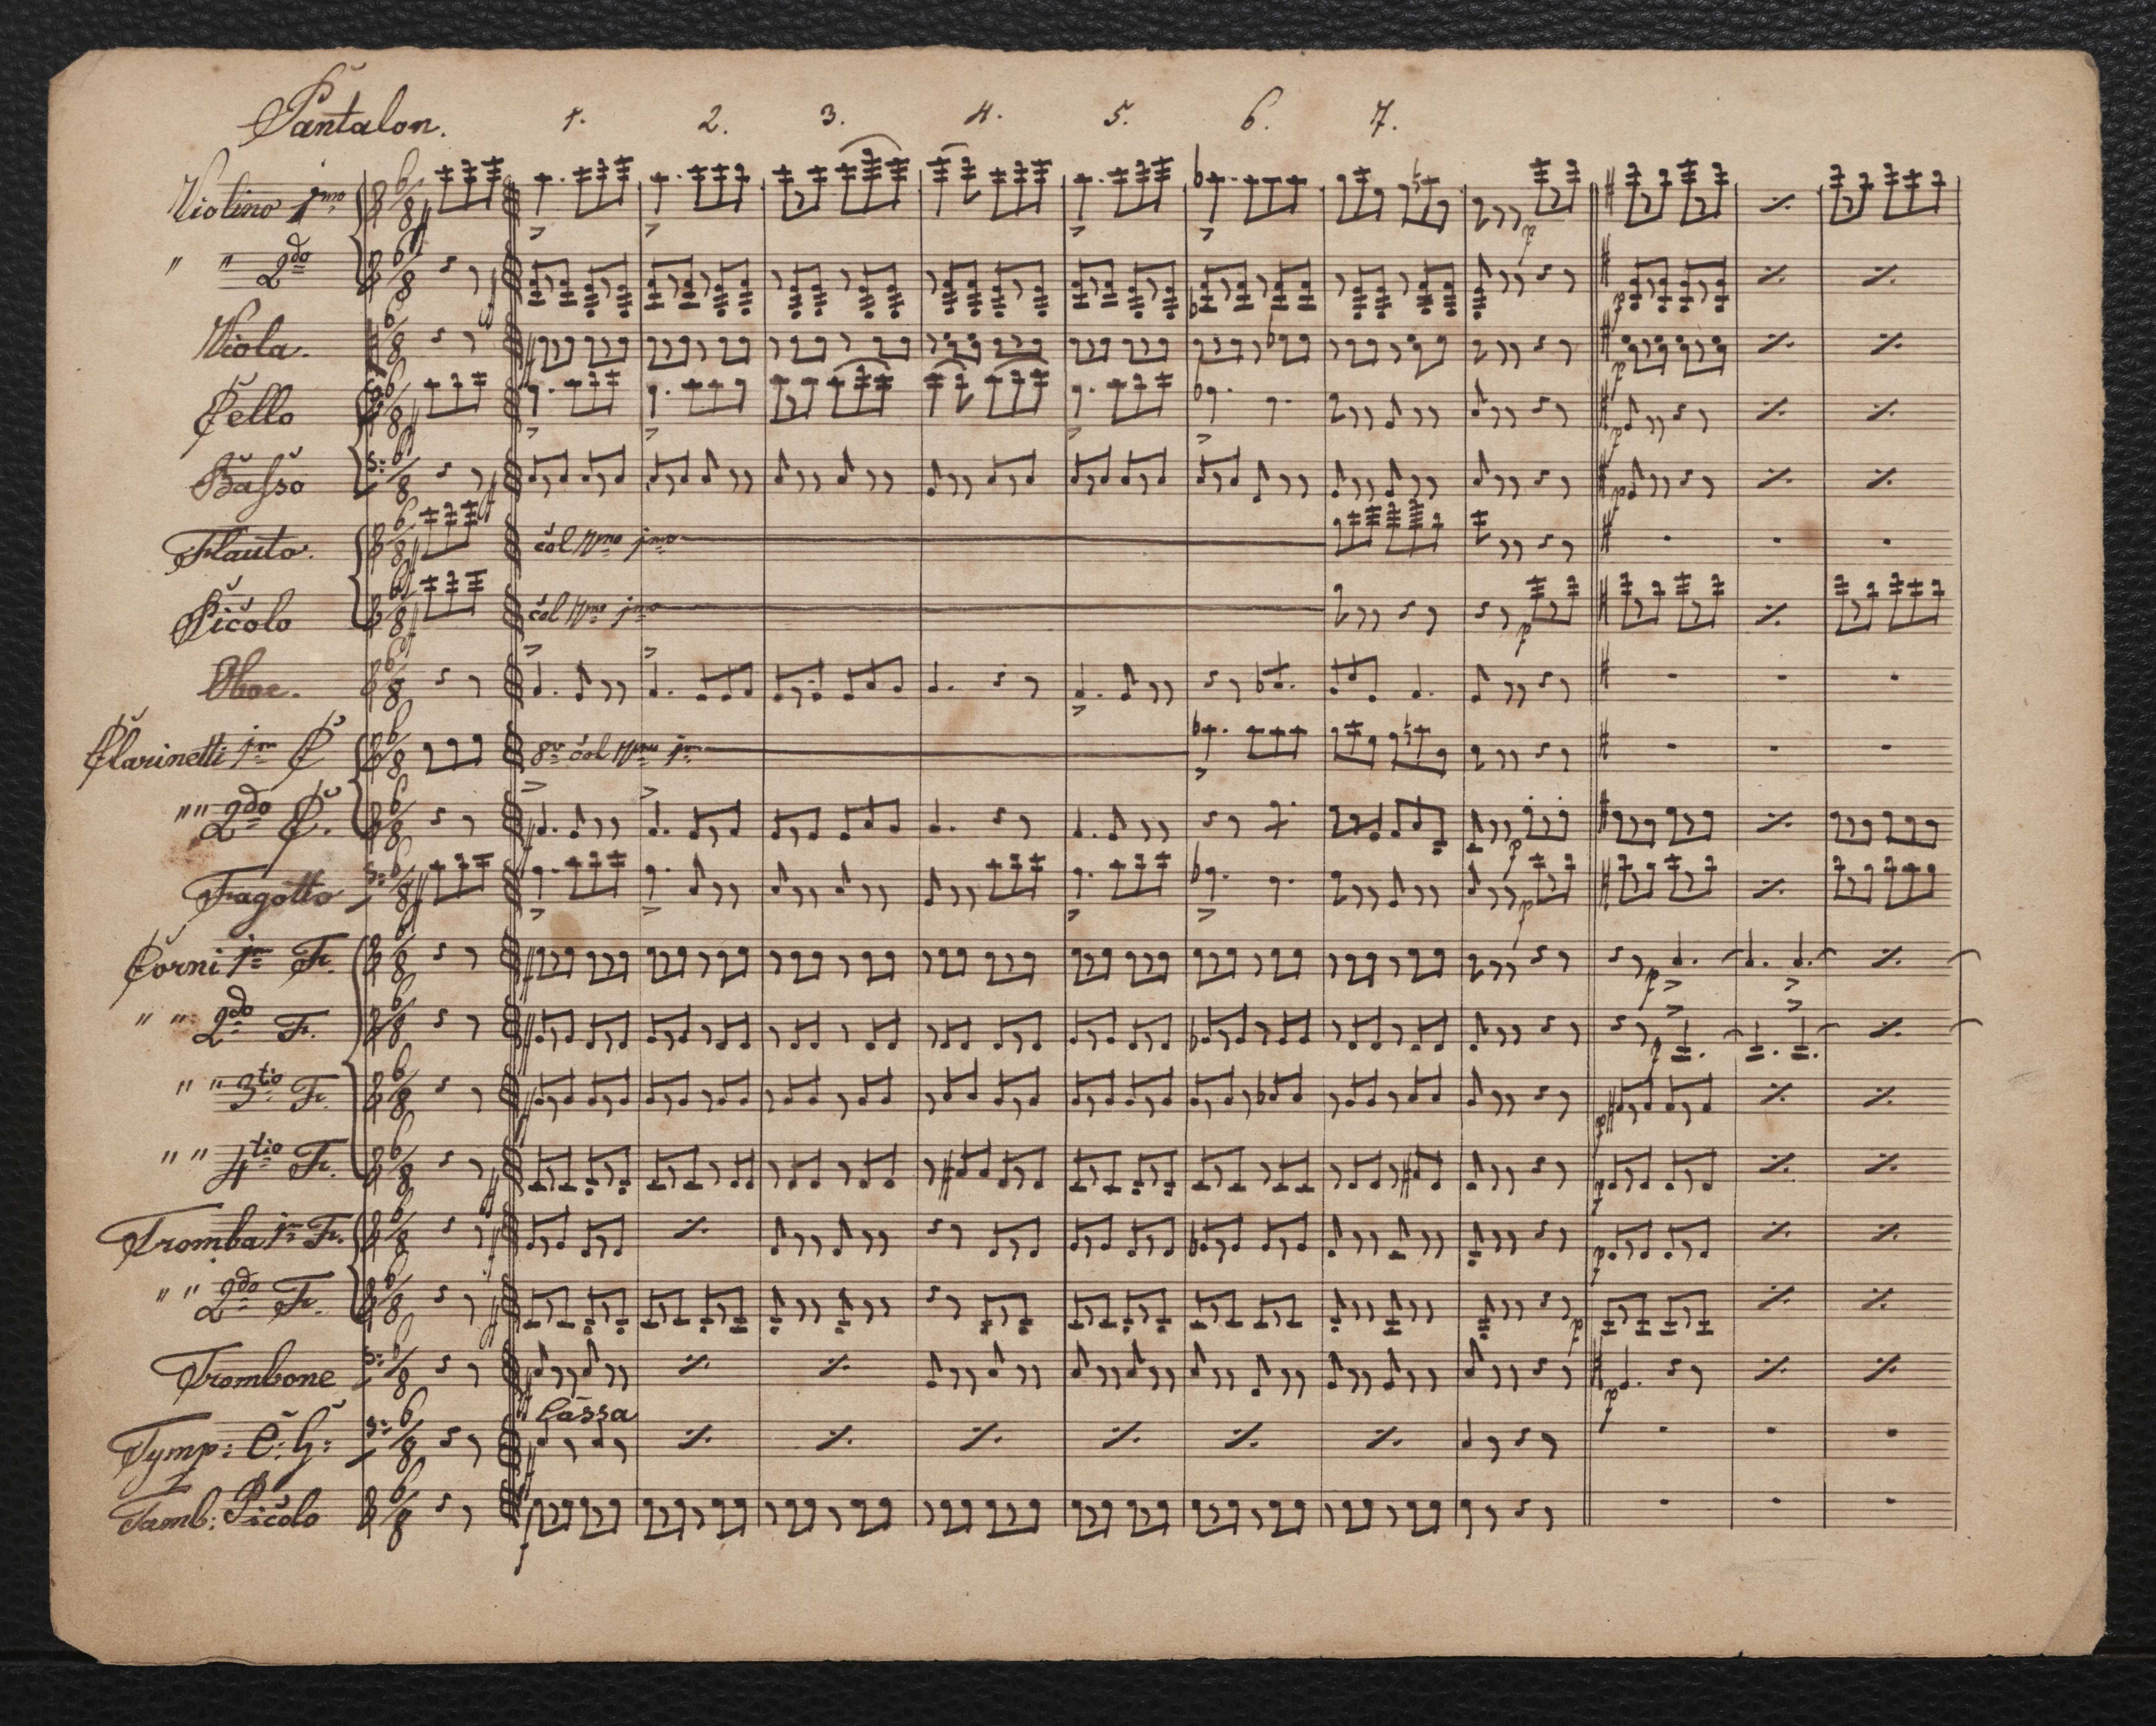 Pantalon. 1. 2. 3. 4. 5. 6. 7.
Violino 1mo
" " 2do
Viola.
Cello
Basso
Flauto. col Vmo 1mo
Picolo col Vmo 1mo
Oboe.
Clarinetti 1m C 8va col Vmo 1m
" " 2do C.
Fagotto
Corni 1m F.
" " 2do F.
" " 3tio F.
" " 4tio F.
Tromba 1m F.
" " 2do F.
Trombone
Cassa
Tymp: C: G:
Tamb: Picolo